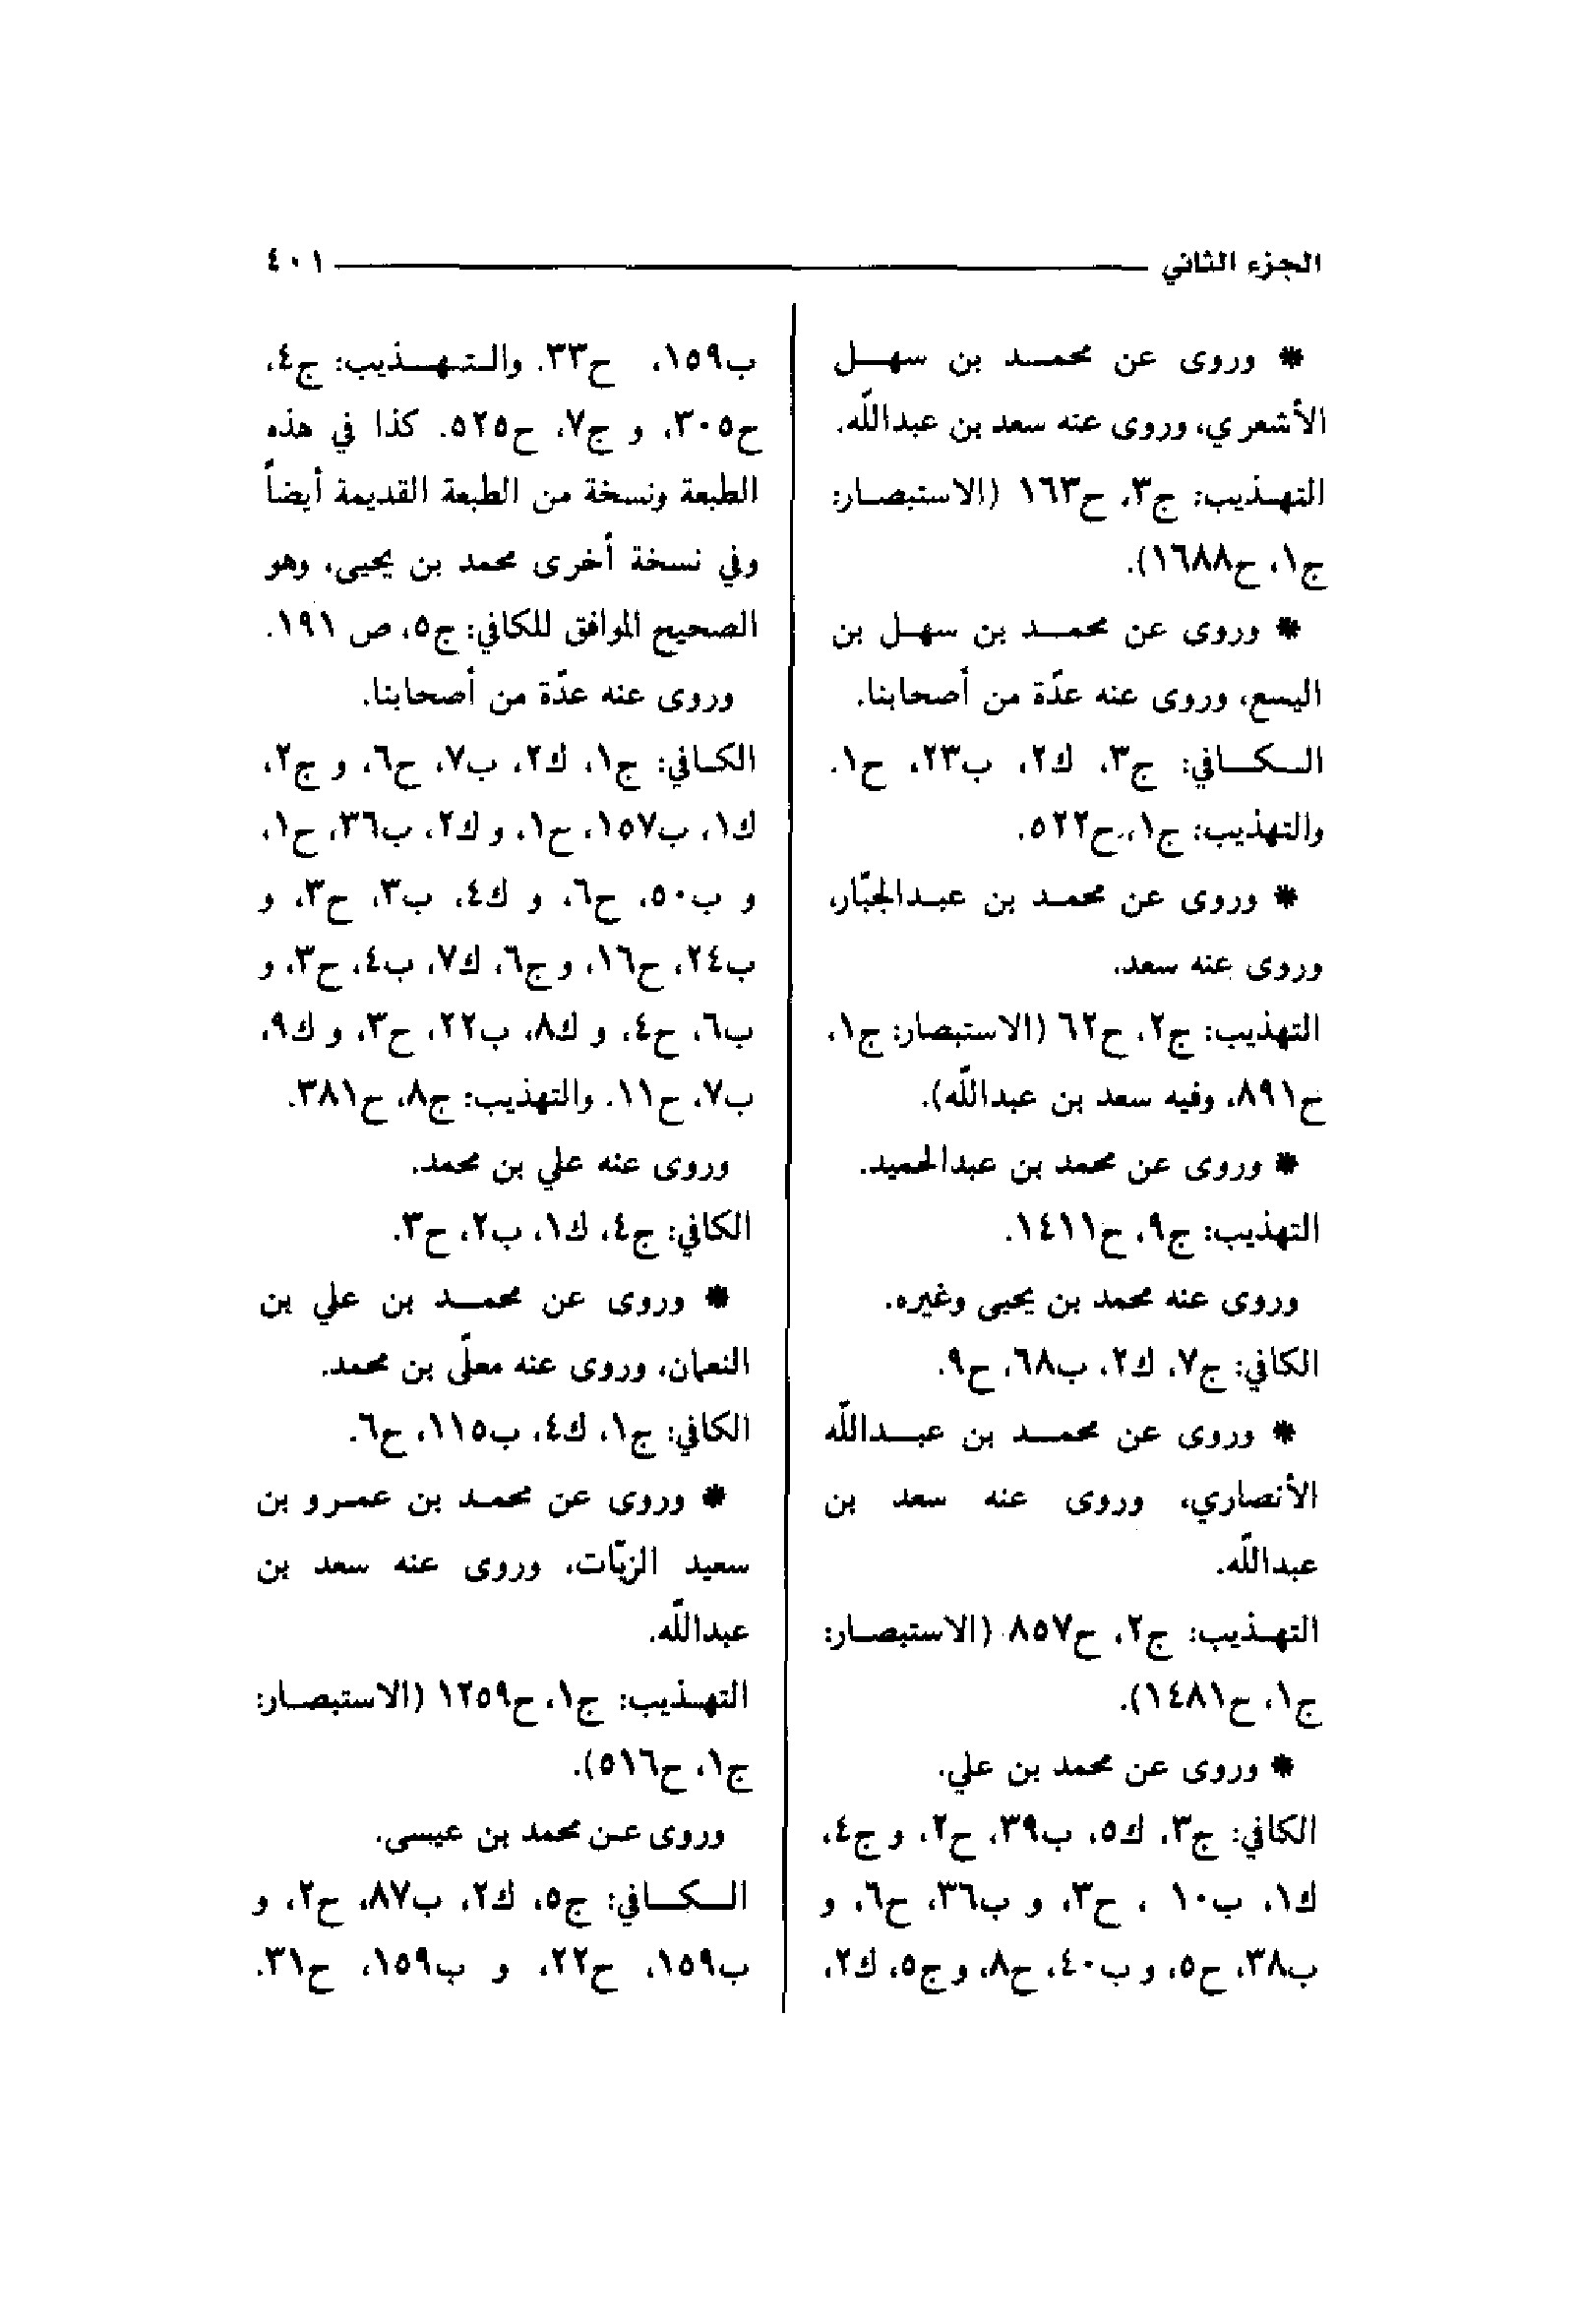 الجزء الثاني ٤٠١
* وروى عن محمد بن سهل
الأشعري، وروى عنه سعد بن عبداللّه.
التهذيب: ج٣، ح١٦٣ (الاستبصار:
ج١، ح١٦٨٨).
* وروى عن محمد بن سهل بن
اليسع، وروى عنه عدّة من أصحابنا.
الكافي: ج٣، ك٢، ب٢٣، ح١.
والتهذيب: ج١، ح٥٢٢.
* وروى عن محمد بن عبدالجبّار،
وروى عنه سعد.
التهذيب: ج٢، ح٦٢ (الاستبصار: ج١،
ح٨٩١، وفيه سعد بن عبداللّه).
* وروى عن محمد بن عبدالحميد.
التهذيب: ج٩، ح١٤١١.
وروى عنه محمد بن يحيى وغيره.
الكافي: ج٧، ك٢، ب٦٨، ح٩.
* وروى عن محمد بن عبداللّه
الأنصاري، وروى عنه سعد بن
عبداللّه.
التهذيب: ج٢، ح٨٥٧ (الاستبصار:
ج١، ح١٤٨١).
* وروى عن محمد بن علي.
الكافي: ج٣، ك٥، ب٣٩، ح٢، و ج٤،
ك١، ب١٠ ، ح٣، و ب٣٦، ح٦، و
ب٣٨، ح٥، و ب٤٠، ح٨، و ج٥، ك٢،
ب١٥٩، ح٣٣. والتهذيب: ج٤،
ح٣٠٥، و ج٧، ح٥٢٥. كذا في هذه
الطبعة ونسخة من الطبعة القديمة أيضاً
وفي نسخة أخرى محمد بن يحيى، وهو
الصحيح الموافق للكافي: ج٥، ص ١٩١.
وروى عنه عدّة من أصحابنا.
الكافي: ج١، ك٢، ب٧، ح٦، و ج٢،
ك١، ب١٥٧، ح١، و ك٢، ب٣٦، ح١،
و ب٥٠، ح٦، و ك٤، ب٣، ح٣، و
ب٢٤، ح١٦، و ج٦، ك٧، ب٤، ح٣، و
ب٦، ح٤، و ك٨، ب٢٢، ح٣، و ك٩،
ب٧، ح١١. والتهذيب: ج٨، ح٣٨١.
وروى عنه علي بن محمد.
الكافي: ج٤، ك١، ب٢، ح٣.
* وروى عن محمد بن علي بن
النعمان، وروى عنه معلّى بن محمد.
الكافي: ج١، ك٤، ب١١٥، ح٦.
* وروى عن محمد بن عمرو بن
سعيد الزيّات، وروى عنه سعد بن
عبداللّه.
التهذيب: ج١، ح١٢٥٩ (الاستبصار:
ج١، ح٥١٦).
وروى عن محمد بن عيسى.
الكافي: ج٥، ك٢، ب٨٧، ح٢، و
ب١٥٩، ح٢٢، و ب١٥٩، ح٣١.